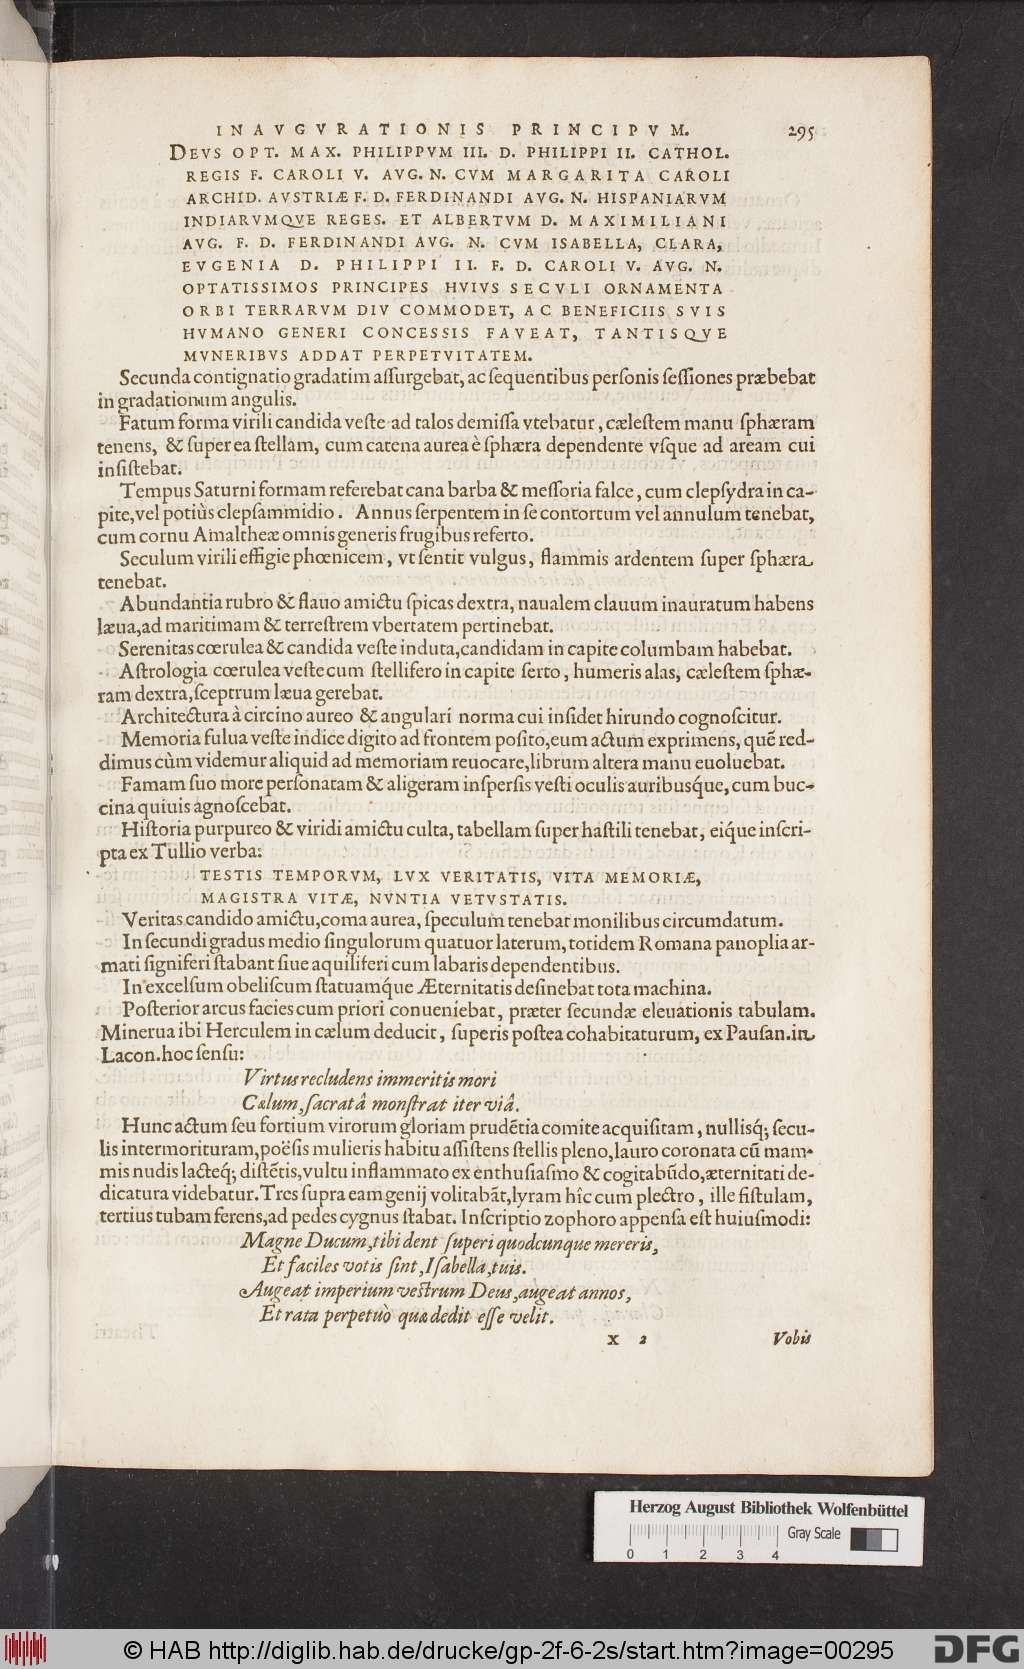 INAVGVRATIONIS PRINCIPVM. 295
DEVS OPT. MAX. PHILIPPVM III. D. PHILIPPI II. CATHOL.
REGIS F. CAROLI V. AVG. N. CVM MARGARITA CAROLI
ARCHID. AVSTRIÆ F. D. FERDINANDI AVG. N. HISPANIARVM
INDIARVMQVE REGES. ET ALBERTVM D. MAXIMILIANI
AVG. F. D. FERDINANDI AVG. N. CVM ISABELLA, CLARA,
EVGENIA D. PHILIPPI II. F. D. CAROLI V. AVG. N.
OPTATISSIMOS PRINCIPES HVIVS SECVLI ORNAMENTA
ORBI TERRARVM DIV COMMODET, AC BENEFICIIS SVIS
HVMANO GENERI CONCESSIS FAVEAT, TANTISQVE
MVNERIBVS ADDAT PERPETVITATEM.
Secunda contignatio gradatim aſſurgebat, ac ſequentibus perſonis ſeſſiones præbebat
in gradationum angulis.
Fatum forma virili candida veſte ad talos demiſſa vtebatur, cæleſtem manu ſphæram
tenens, & ſuper ea ſtellam, cum catena aurea è ſphæra dependente vſque ad aream cui
inſiſtebat.
Tempus Saturni formam referebat cana barba & meſſoria falce, cum clepſydra in ca-
pite, vel potiùs clepſammidio. Annus ſerpentem in ſe contortum vel annulum tenebat,
cum cornu Amaltheæ omnis generis frugibus referto.
Seculum virili effigie phœnicem, vt ſentit vulgus, flammis ardentem ſuper ſphæra
tenebat.
Abundantia rubro & flauo amictu ſpicas dextra, naualem clauum inauratum habens
læua, ad maritimam & terreſtrem vbertatem pertinebat.
Serenitas cœrulea & candida veſte induta, candidam in capite columbam habebat.
Aſtrologia cœrulea veſte cum ſtellifero in capite ſerto, humeris alas, cæleſtem ſphæ-
ram dextra, ſceptrum læua gerebat.
Architectura à circino aureo & angulari norma cui inſidet hirundo cognoſcitur.
Memoria fulua veſte indice digito ad frontem poſito, eum actum exprimens, quẽ red-
dimus cùm videmur aliquid ad memoriam reuocare, librum altera manu euoluebat.
Famam ſuo more perſonatam & aligeram inſperſis veſti oculis auribusq́ue, cum buc-
cina quiuis agnoſcebat.
Hiſtoria purpureo & viridi amictu culta, tabellam ſuper haſtili tenebat, eiq́ue inſcri-
pta ex Tullio verba:
TESTIS TEMPORVM, LVX VERITATIS, VITA MEMORIÆ,
MAGISTRA VITÆ, NVNTIA VETVSTATIS.
Veritas candido amictu, coma aurea, ſpeculum tenebat monilibus circumdatum.
In ſecundi gradus medio ſingulorum quatuor laterum, totidem Romana panoplia ar-
mati ſigniferi ſtabant ſiue aquiliferi cum labaris dependentibus.
In excelſum obeliſcum ſtatuamq́ue Æternitatis deſinebat tota machina.
Poſterior arcus facies cum priori conueniebat, præter ſecundæ eleuationis tabulam.
Minerua ibi Herculem in cælum deducit, ſuperis poſtea cohabitaturum, ex Pauſan. in
Lacon. hoc ſenſu:
Virtus recludens immeritis mori
Cælum, ſacratâ monſtrat iter viâ.
Hunc actum ſeu fortium virorum gloriam prudẽtia comite acquiſitam, nulliſq́; ſecu-
lis intermorituram, poëſis mulieris habitu aſſiſtens ſtellis pleno, lauro coronata cũ mam-
mis nudis lacteq́; diſtẽtis, vultu inflammato ex enthuſiaſmo & cogitabũdo, æternitati de-
dicatura videbatur. Tres ſupra eam genij volitabãt, lyram hîc cum plectro, ille fiſtulam,
tertius tubam ferens, ad pedes cygnus ſtabat. Inſcriptio zophoro appenſa eſt huiuſmodi:
Magne Ducum, tibi dent ſuperi quodcunque mereris,
Et faciles votis ſint, Iſabella, tuis.
Augeat imperium veſtrum Deus, augeat annos,
Et rata perpetuò quæ dedit eſſe velit.
X 2 Vobis
Herzog August Bibliothek Wolfenbüttel
Gray Scale
0 1 2 3 4
© HAB http://diglib.hab.de/drucke/gp-2f-6-2s/start.htm?image=00295
DFG